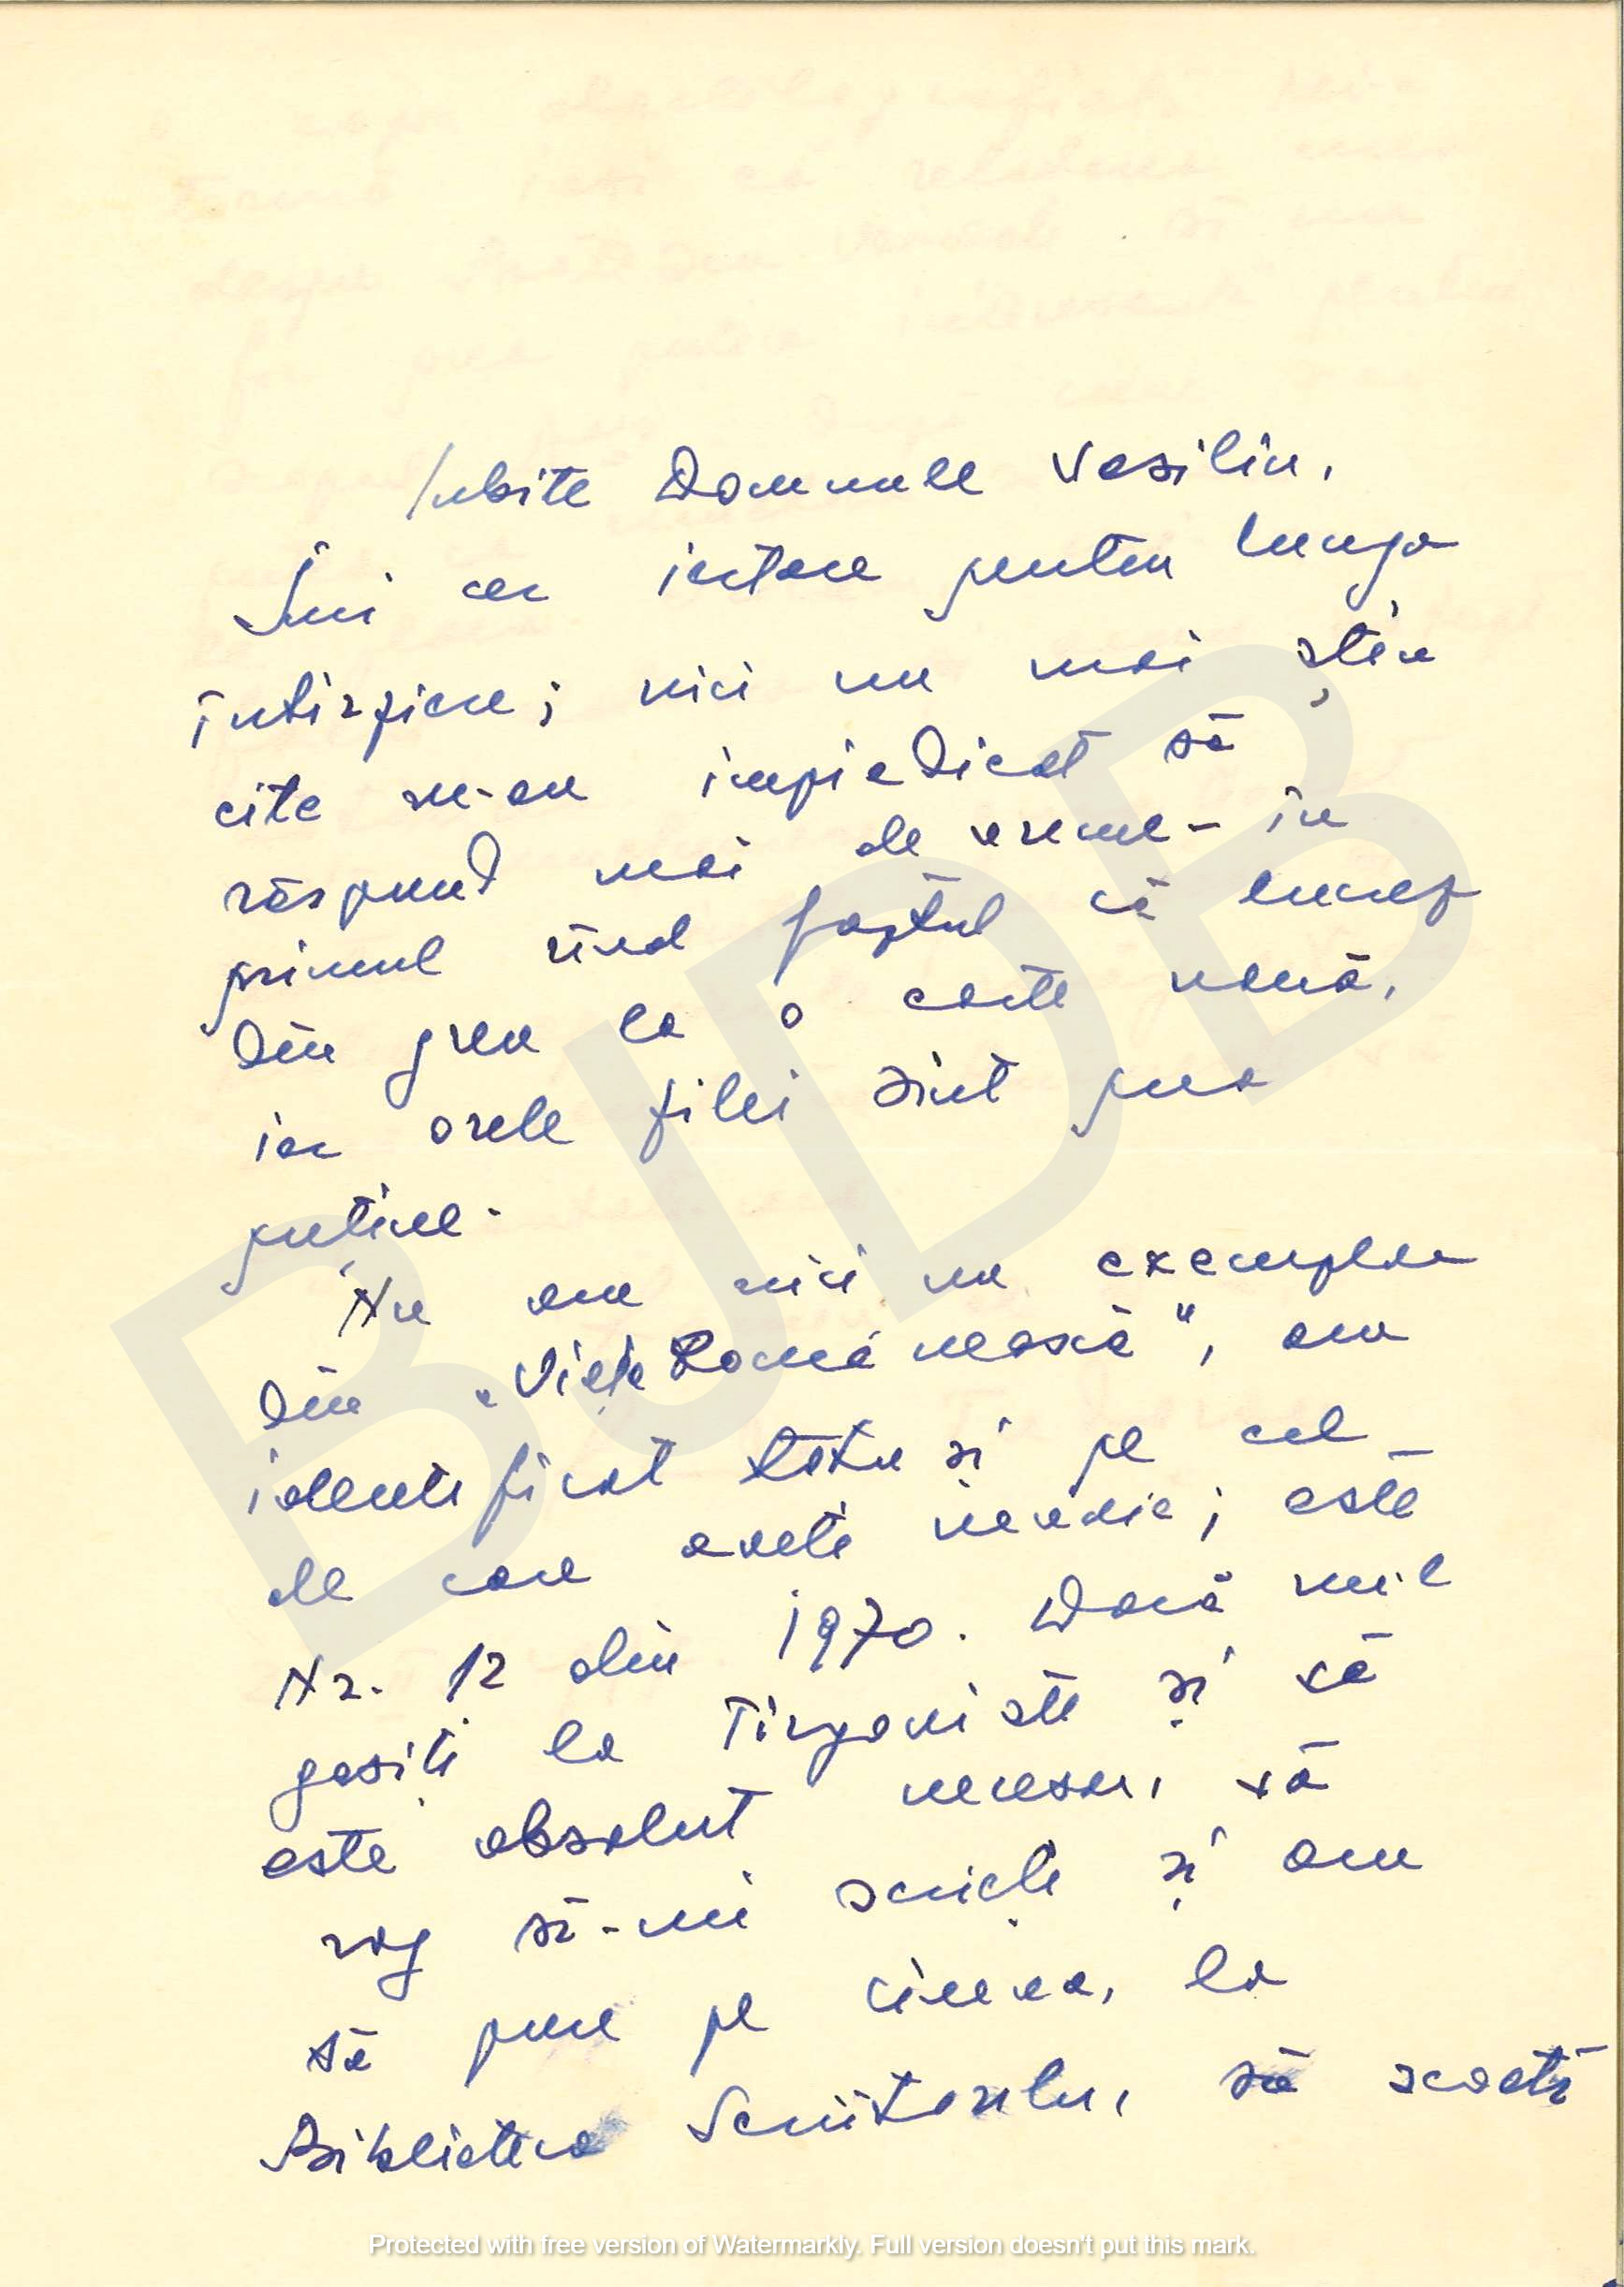 Iubite Domnule Vasiliu,
Îmi cer iertare pentru lunga
întîrziere; nici nu mai știu
cîte m-au împiedicat să
răspund mai de vreme - în
primul rînd faptul că lucrez
din greu la o carte nouă,
iar orele zilei sînt prea
puține.
Nu am nici un exemplar
din „Viața Românească", am
identificat totuși pe cel
de care aveți nevoie; este
Nr. 12 din 1970. Dacă nu-l
găsiți la Tîrgoviște și vă
este absolut necesar, vă
rog să-mi scrieți și am
să pun pe cineva, la
Biblioteca Scriitorilor, să scoată
BJDB
Protected with free version of Watermarkly. Full version doesn't put this mark.